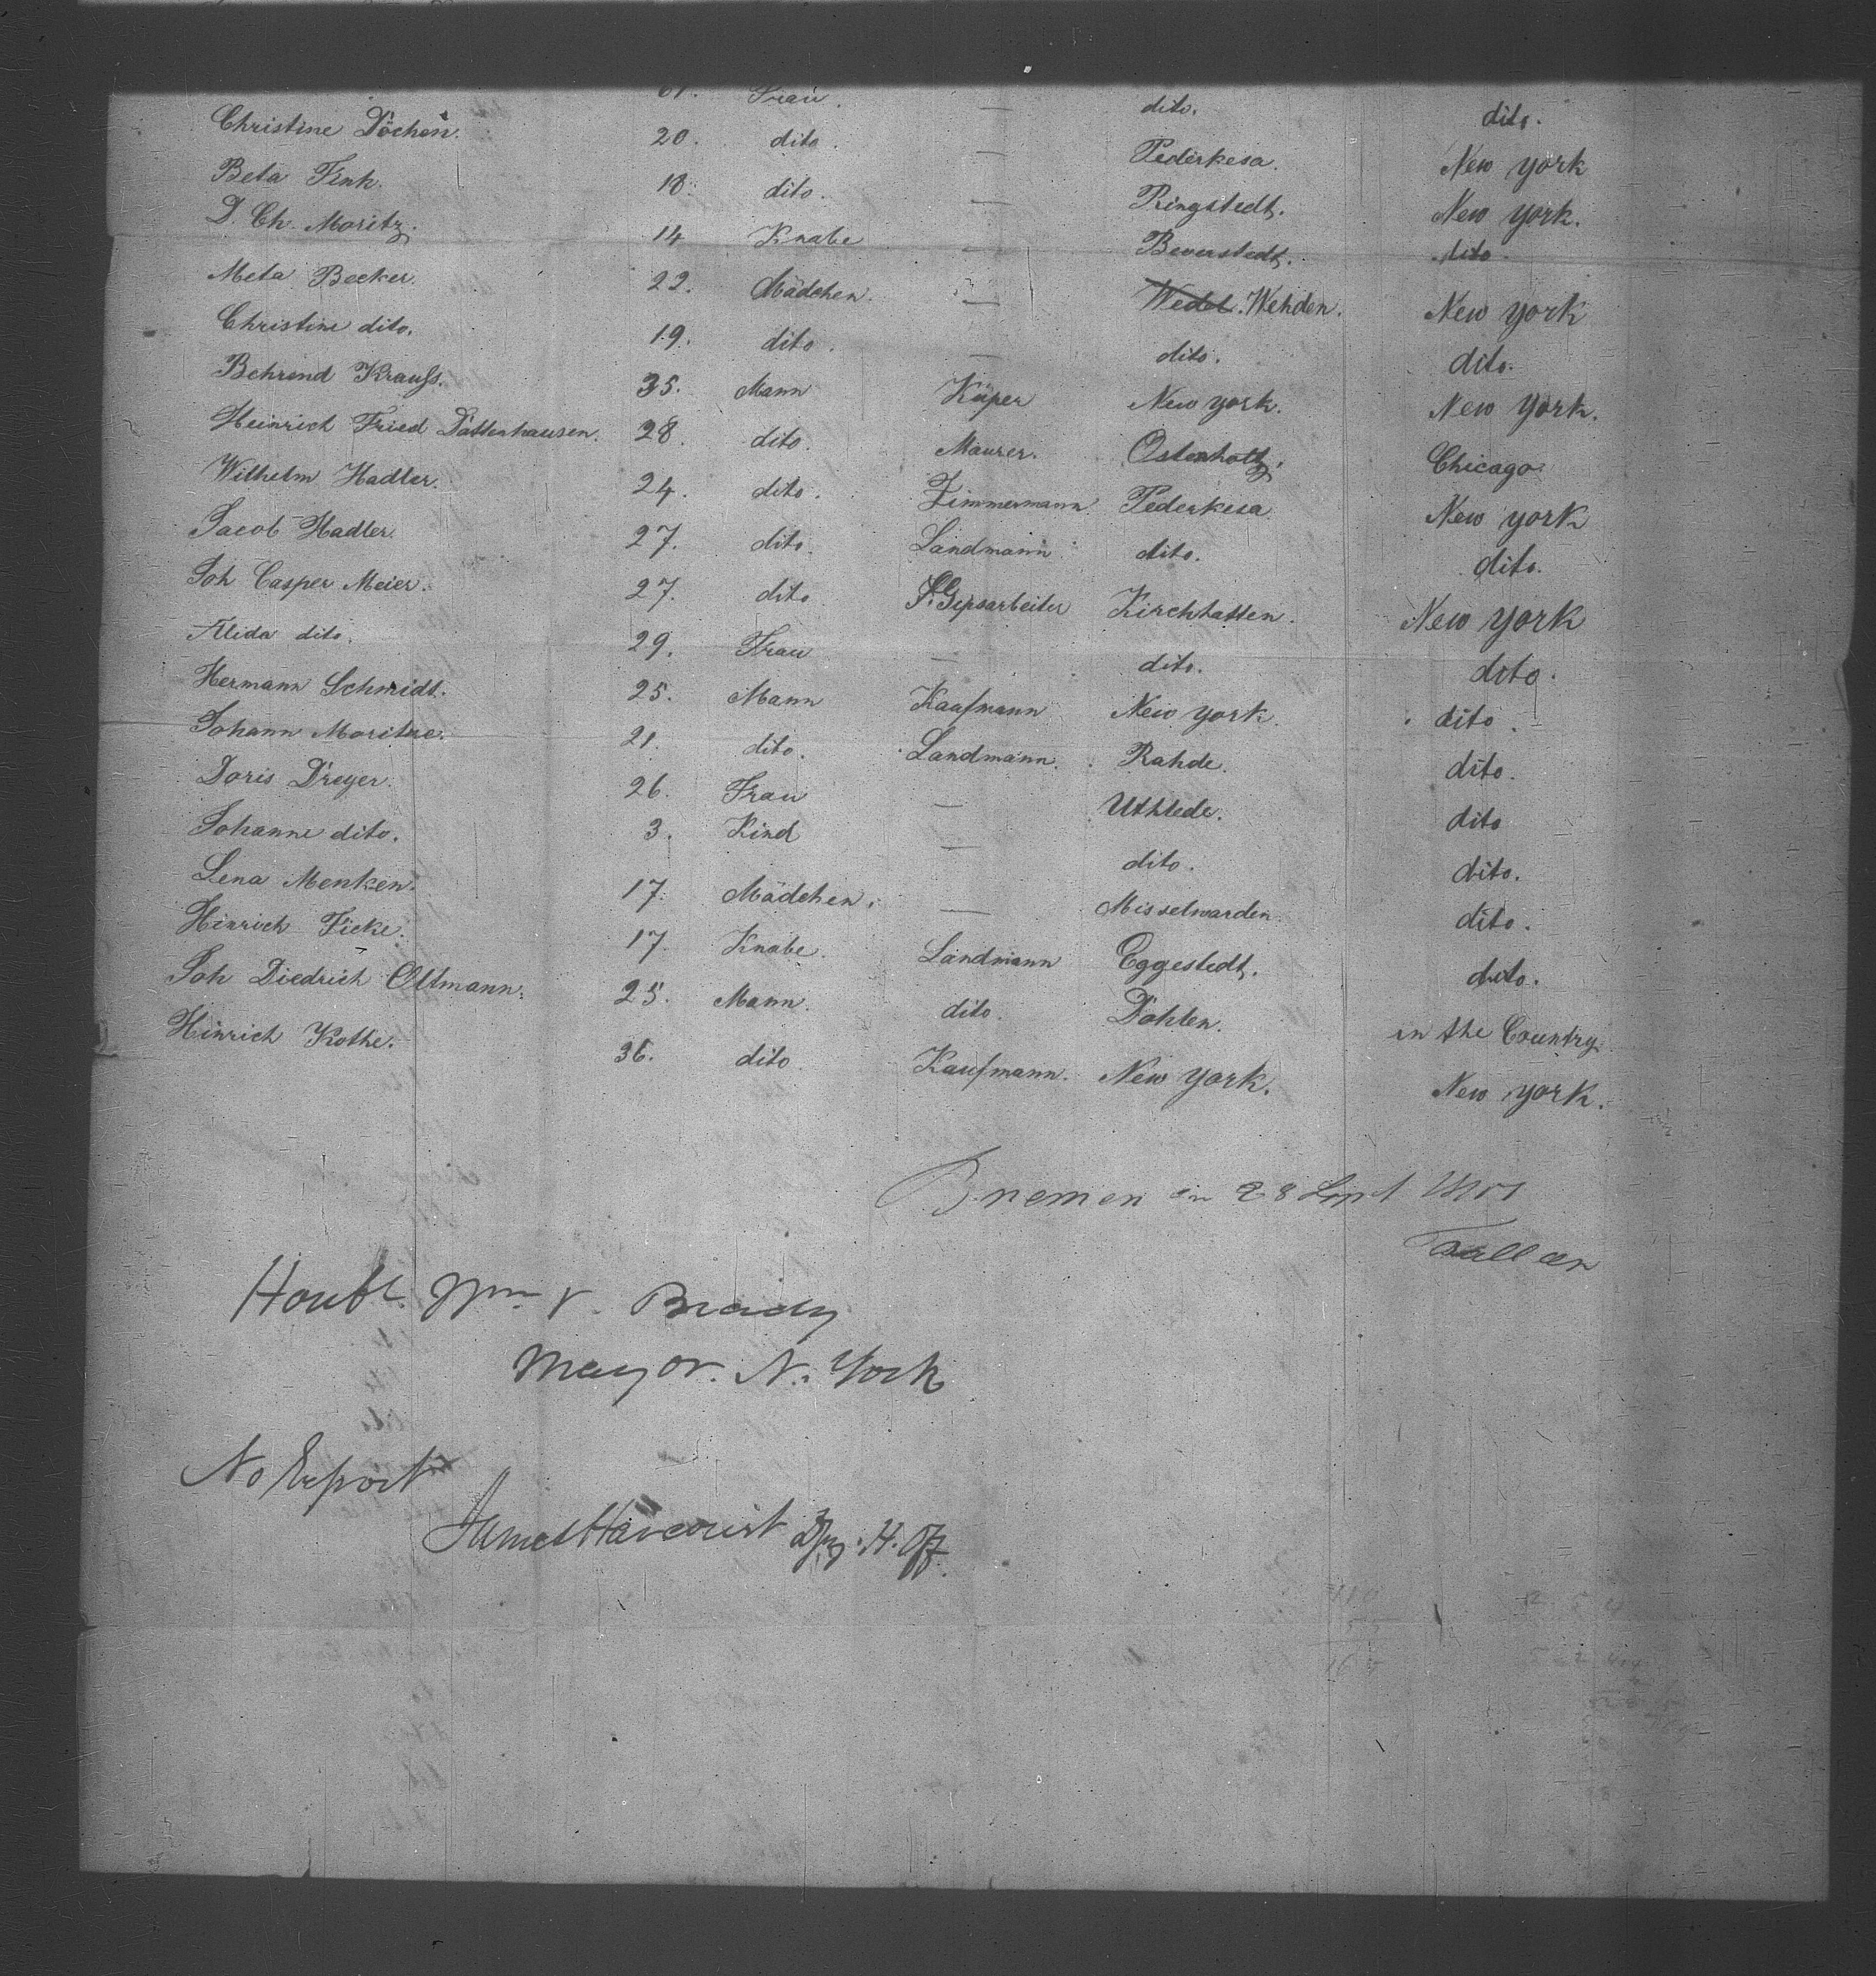 61. Frau. — dito. dito.
Christine Döchen. 20. dito. — Bederkesa. New York
Beta Fink. 18. dito. — Ringstedt. New York.
D. Ch. Moritz. 14 Knabe — Beverstedt. dito.
Meta Becker. 22. Mädchen. — Wedel. Wehden. New York
Christine dito. 19. dito. — dito. dito.
Behrend Krauss. 35. Mann Küper New York. New York.
Heinrich Fried Dattenhausen. 28. dito. Maurer. Ostenholtz. Chicago
Wilhelm Hadler. 24. dito. Zimmermann Bederkesa. New York
Jacob Hadler. 27. dito. Landmann dito. dito.
Joh Casper Meier. 27. dito Gipsarbeiter Kirchhatten. New York
Alida dito. 29. Frau — dito. dito.
Hermann Schmidt. 25. Mann Kaufmann New York. dito.
Johann Moritze. 21. dito. Landmann. Rahde. dito.
Doris Dreyer. 26. Frau — Uthlede. dito
Johanne dito. 3. Kind — dito. dito.
Lena Menken. 17. Mädchen. — Misselwarden dito.
Hinrich Ficke. 17. Knabe. Landmann Eggestedt. dito.
Joh Diedrich Oltmann. 25. Mann. dito. Dohlen. in the Country.
Hinrich Kothe. 36. dito. Kaufmann. New York. New York.
Bremen 28 Sept
Honbl. Wm. V. Brady
Mayor. N. York
No Report
James Harcourt Dpy. H. Off.